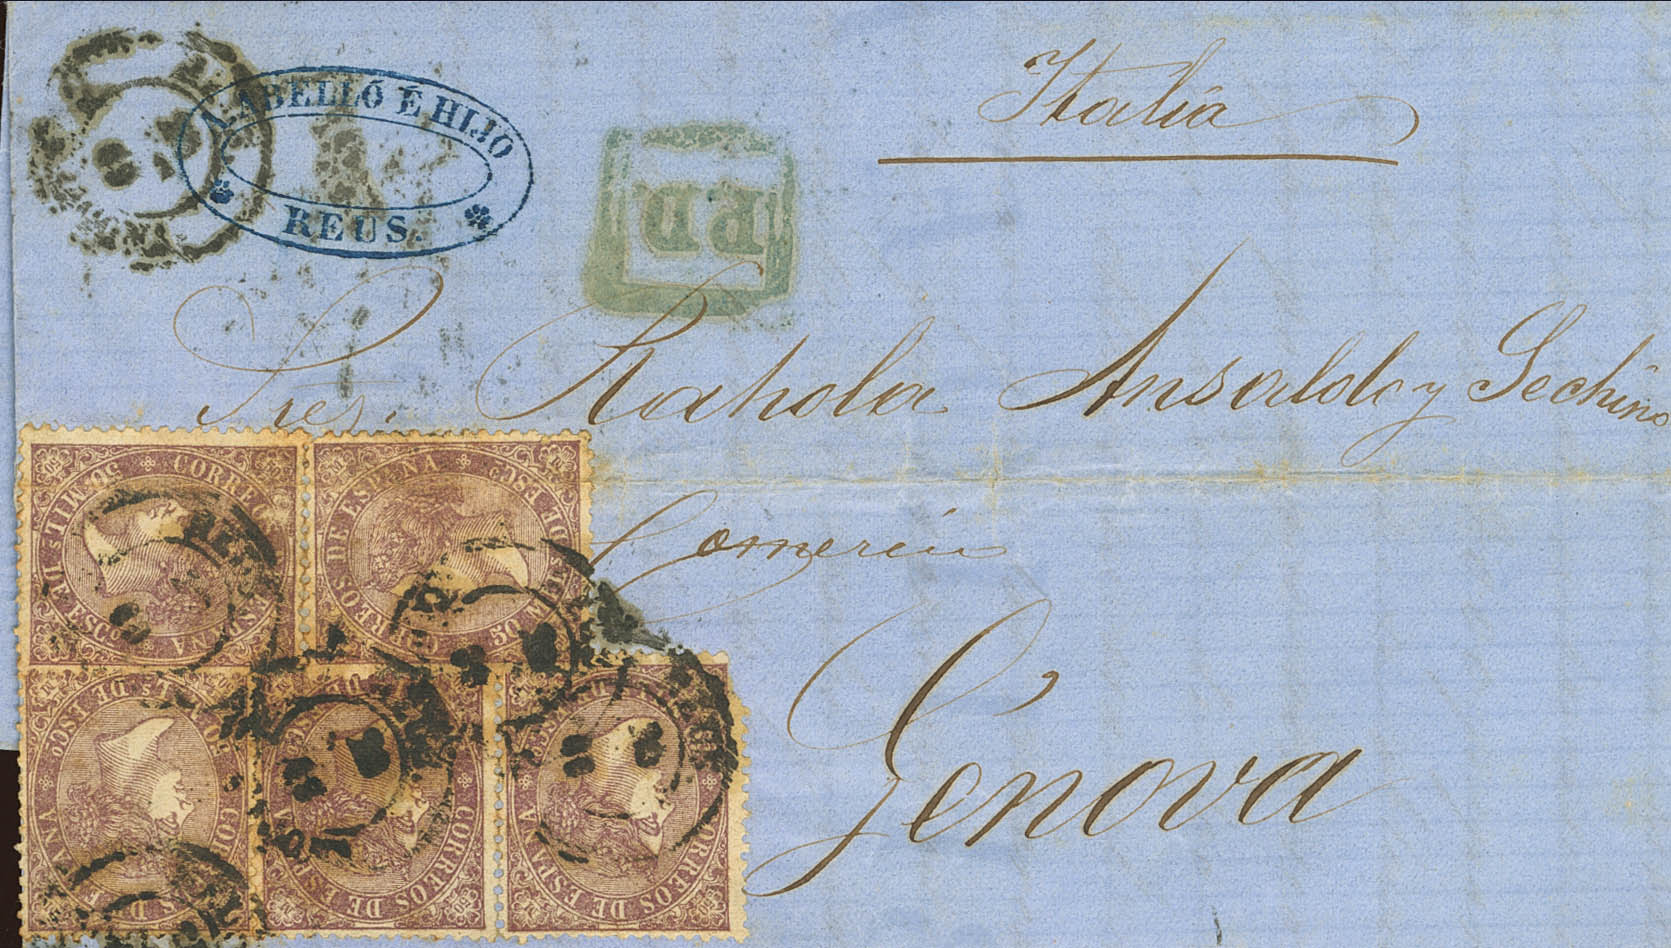 Italia
ABELLÓ É HIJO
REUS.
PD
Sres. Rahola Ansaldo y Sechino
Comercio
Genova
50 MIL.S DE ESCO CORREOS DE ESPAÑA
CORREOS DE ESPAÑA 50 MIL.S DE ESCO
CORREOS DE ESPAÑA
CORREOS DE ESPAÑA
CORREOS DE ESPAÑA